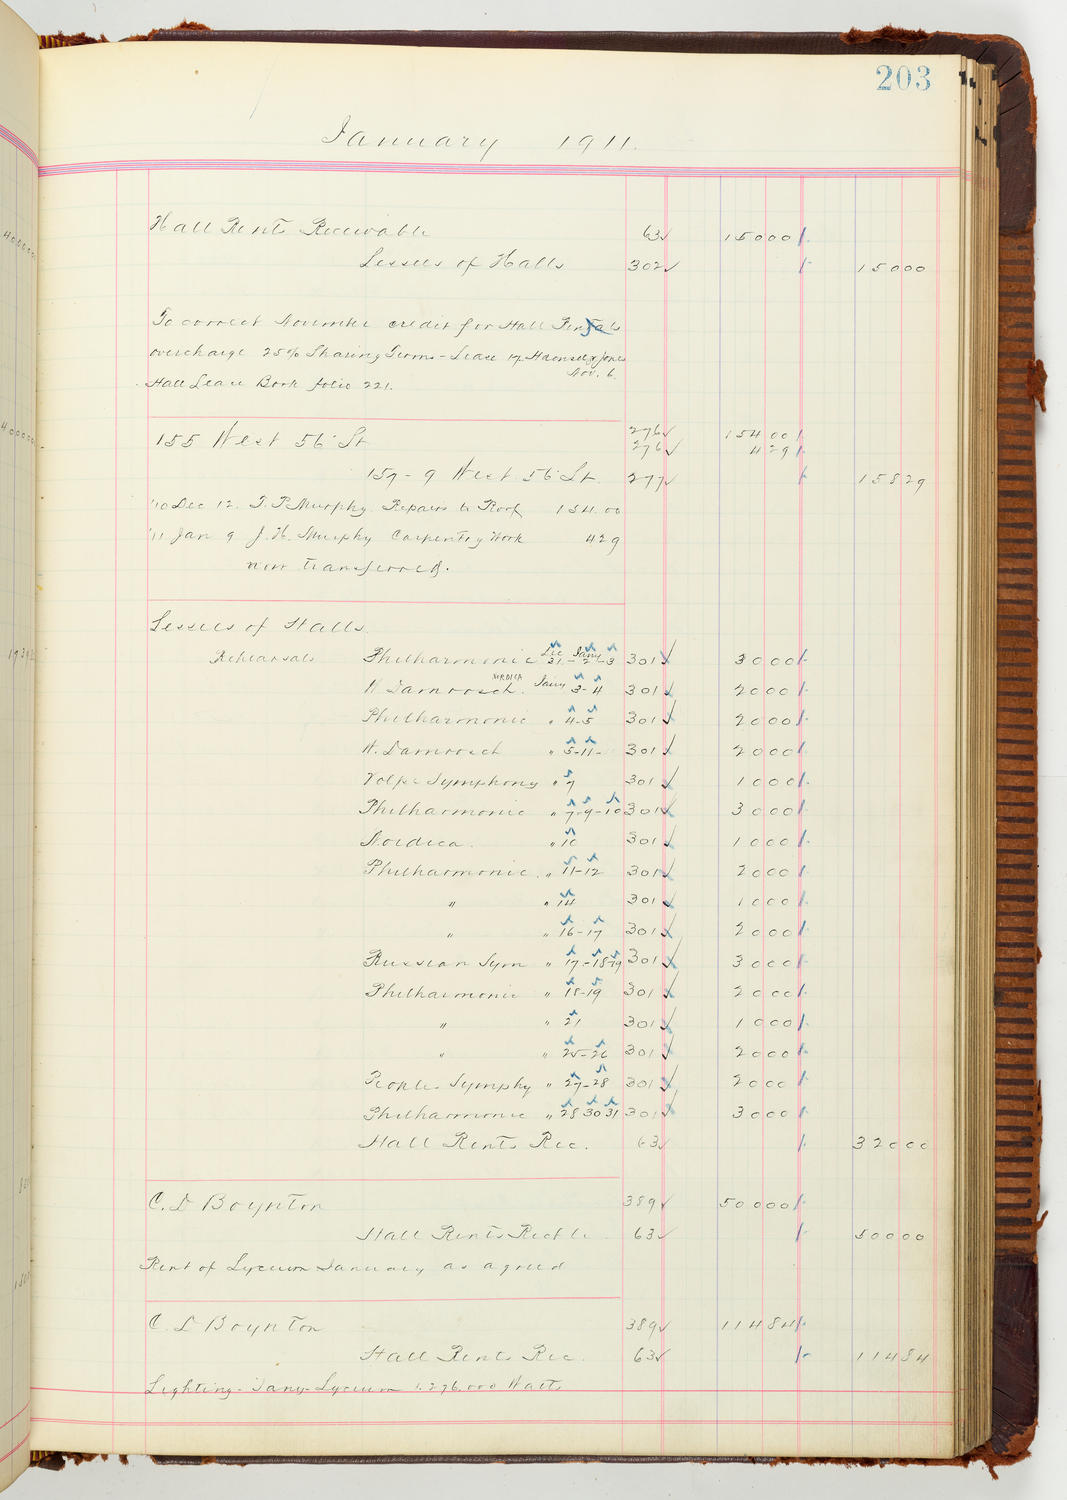 203
January 1911.
Hall Rents Receivable 63 15000
Lessees of Halls 302 15000
To correct November credit for Hall Rentals
overcharge 25% Sharing Terms - Lease Haensel & Jones
Nov. 6.
Hall Lease Book folio 221.
155 West 56 St 276 15400
276 429
157-9 West 56 St. 277 15829
'10 Dec 12. T. P. Murphy. Repairs to Roof 154.00
'11 Jan 9 J. H. Murphy Carpentry Work 429
now transferred.
Lessees of Halls.
Rehearsals Philharmonic Dec 31 - Jany 2-3 301 3000
W. Damrosch. NORDICA Jany 3-4 301 2000
Philharmonic " 4-5 301 2000
W. Damrosch " 5-11- 301 2000
Volpe Symphony " 7 301 1000
Philharmonic " 7-9-10 301 3000
Nordica. " 10 301 1000
Philharmonic. " 11-12 301 2000
" " 14 301 1000
" " 16-17 301 2000
Russian Sym " 17-18-19 301 3000
Philharmonic " 18-19 301 2000
" " 21 301 1000
" " 25-26 301 2000
Peoples Symphy " 27-28 301 2000
Philharmonic " 28 30 31 301 3000
Hall Rents Rec. 63 32000
C. D Boynton 389 50000
Hall Rents Recble 63 50000
Rent of Lyceum January as agreed
C. D Boynton 389 11484
Hall Rents Rec. 63 11484
Lighting - Jany - Lyceum 1.276.000 Watts